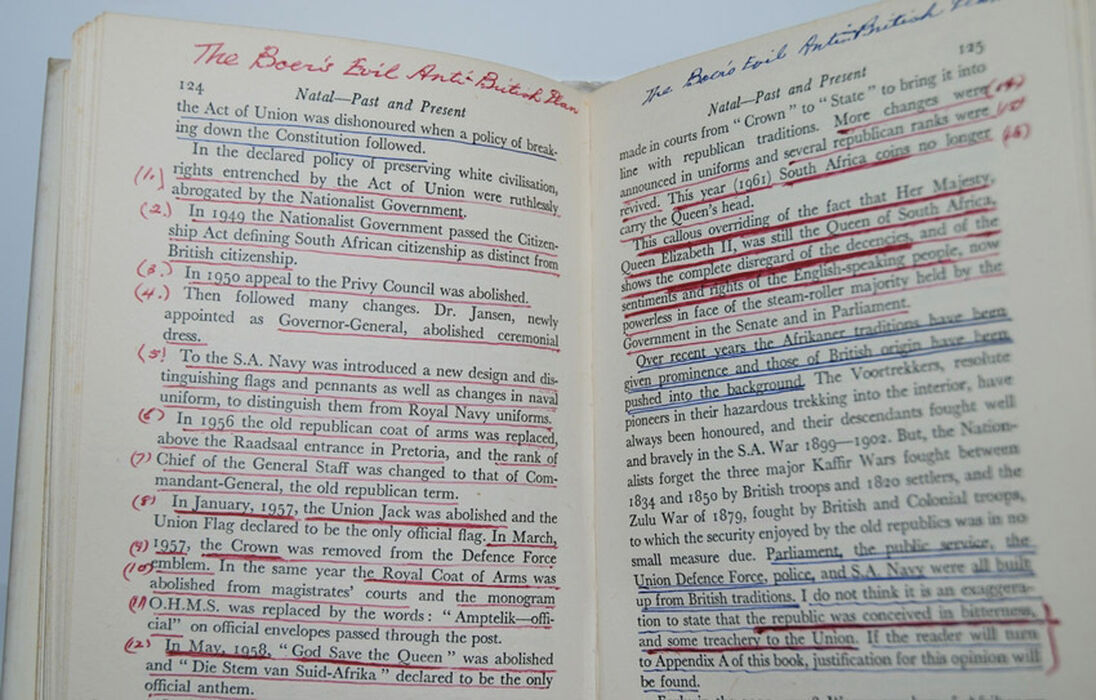 The Boer's Evil Anti-British Plan
124
Natal—Past and Present
the Act of Union was dishonoured when a policy of break-
ing down the Constitution followed.
In the declared policy of preserving white civilisation,
(1.) rights entrenched by the Act of Union were ruthlessly
abrogated by the Nationalist Government.
(2.) In 1949 the Nationalist Government passed the Citizen-
ship Act defining South African citizenship as distinct from
British citizenship.
(3.) In 1950 appeal to the Privy Council was abolished.
(4.) Then followed many changes. Dr. Jansen, newly
appointed as Governor-General, abolished ceremonial
dress.
(5) To the S.A. Navy was introduced a new design and dis-
tinguishing flags and pennants as well as changes in naval
uniform, to distinguish them from Royal Navy uniforms.
(6) In 1956 the old republican coat of arms was replaced,
above the Raadsaal entrance in Pretoria, and the rank of
(7) Chief of the General Staff was changed to that of Com-
mandant-General, the old republican term.
(8) In January, 1957, the Union Jack was abolished and the
Union Flag declared to be the only official flag. In March,
(9) 1957, the Crown was removed from the Defence Force
(10) emblem. In the same year the Royal Coat of Arms was
abolished from magistrates' courts and the monogram
(11) O.H.M.S. was replaced by the words: "Amptelik—offi-
cial" on official envelopes passed through the post.
(12) In May, 1958, "God Save the Queen" was abolished
and "Die Stem van Suid-Afrika" declared to be the only
official anthem.
The Boer's Evil Anti-British Plan
125
Natal—Past and Present
made in courts from "Crown" to "State" to bring it into
line with republican traditions. More changes were (14)
announced in uniforms and several republican ranks were (15)
revived. This year (1961) South Africa coins no longer
carry the Queen's head.
This callous overriding of the fact that Her Majesty,
Queen Elizabeth II, was still the Queen of South Africa,
shows the complete disregard of the decencies, and of the
sentiments and rights of the English-speaking people, now
powerless in face of the steam-roller majority held by the
Government in the Senate and in Parliament.
Over recent years the Afrikaner traditions have been
given prominence and those of British origin have been
pushed into the background. The Voortrekkers, resolute
pioneers in their hazardous trekking into the interior, have
always been honoured, and their descendants fought well
and bravely in the S.A. War 1899—1902. But, the Nation-
alists forget the three major Kaffir Wars fought between
1834 and 1850 by British troops and 1820 settlers, and the
Zulu War of 1879, fought by British and Colonial troops,
to which the security enjoyed by the old republics was in no
small measure due. Parliament, the public service, the
Union Defence Force, police, and S.A. Navy were all built
up from British traditions. I do not think it is an exaggera-
tion to state that the republic was conceived in bitterness,
and some treachery to the Union. If the reader will turn
to Appendix A of this book, justification for this opinion will
be found.